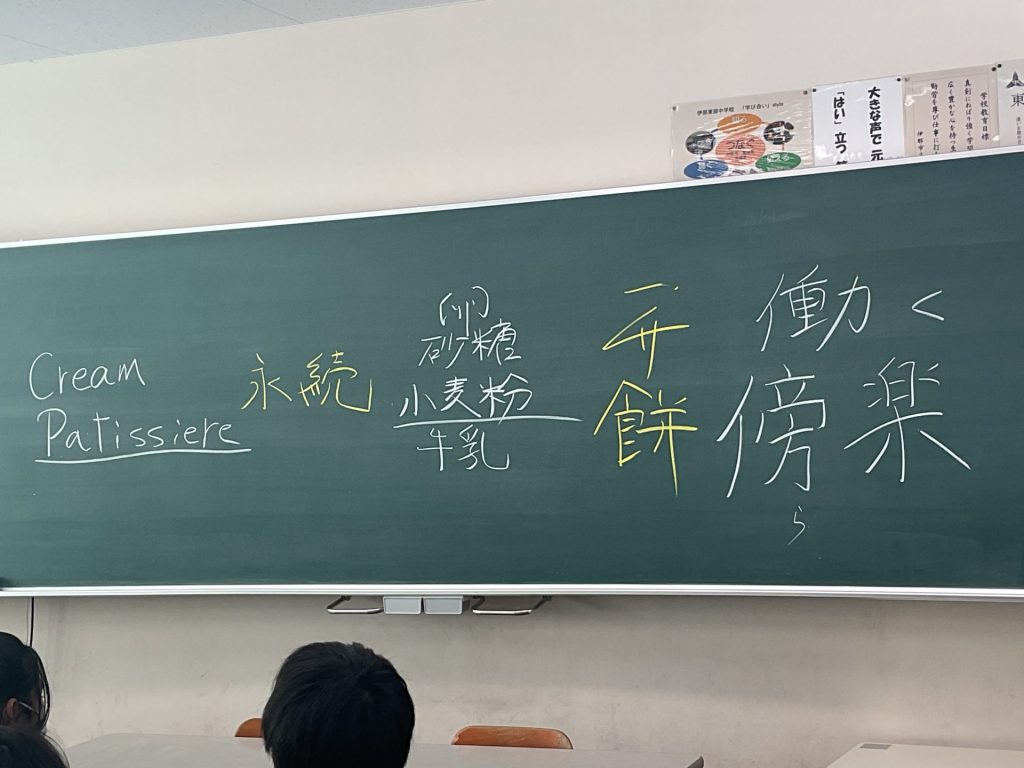 伊那東部中学校 「学び合い」style
つなぐ
大きな声で 元
「はい」 立つ
学校教育目標
真剣にねばり強く学
広く豊かな心を持つ
勤労を尊び仕事に打
東
Cream
Patissiere
永続
卵
砂糖
小麦粉
牛乳
餅
働く
傍楽
ら